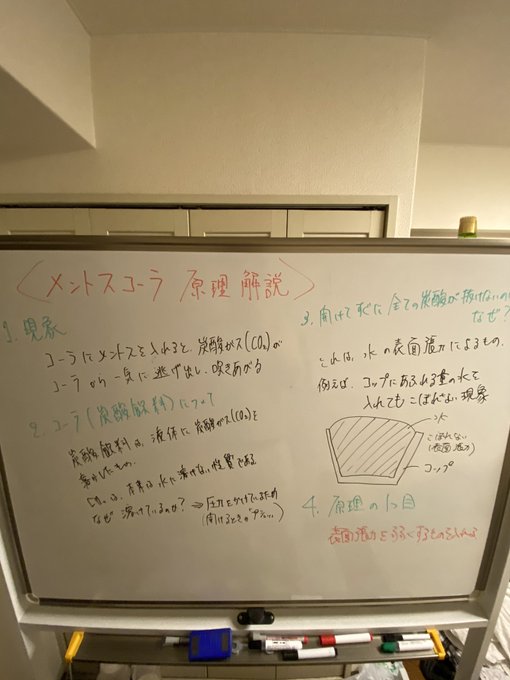 〈メントスコーラ 原理解説〉
1. 現象
コーラにメントスを入れると、炭酸ガス(CO₂)が
コーラから一気に逃げ出し、吹きあがる
2. コーラ(炭酸飲料)について
炭酸飲料は、液体に炭酸ガス(CO₂)を
溶かしたもの。
CO₂は、本来は水に溶けない性質である
なぜ溶けているのか? ⇒ 圧力をかけているため
(開けるときの「プシュッ」)
3. 開けてすぐに全ての炭酸が抜けないのは
なぜ?
これは、水の表面張力によるもの。
例えば、コップにあふれる量の水を
入れてもこぼれない現象
水
こぼれない
(表面張力)
コップ
4. 原理の1つ目
表面張力を弱くするものを入れる